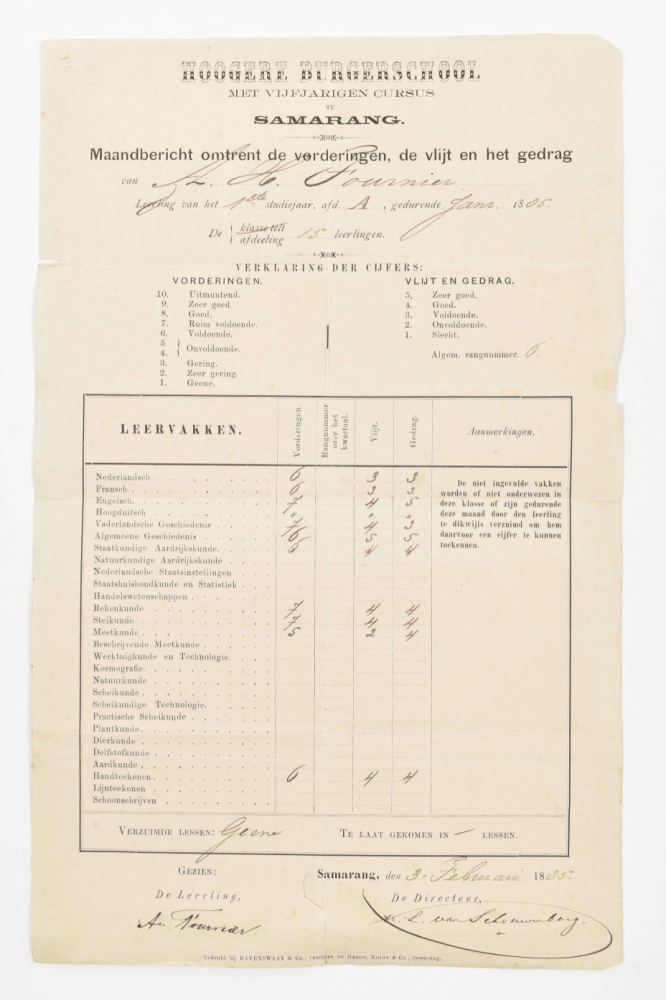 HOOGERE BURGERSCHOOL
MET VIJFJARIGEN CURSUS
TE
SAMARANG.
Maandbericht omtrent de vorderingen, de vlijt en het gedrag
van A. H. Fournier
Leerling van het 1ste studiejaar, afd. A, gedurende Janr. 1885.
De { klasse telt
afdeeling 15 leerlingen.
VERKLARING DER CIJFERS:
VORDERINGEN. VLIJT EN GEDRAG.
10. Uitmuntend. 5. Zeer goed.
9. Zeer goed. 4. Goed.
8. Goed. 3. Voldoende.
7. Ruim voldoende. 2. Onvoldoende.
6. Voldoende. 1. Slecht.
5.
4. } Onvoldoende. Algem. rangnummer. 6.
3. Gering.
2. Zeer gering.
1. Geene.
LEERVAKKEN. Vorderingen. Rangnummer over het kwartaal. Vlijt. Gedrag. Aanmerkingen.
Nederlandsch 6 3 3
Fransch 6 3 3
Engelsch 7 4 5
Hoogduitsch " " "
Vaderlandsche Geschiedenis 7 4 3
Algemeene Geschiedenis 6 5 5
Staatkundige Aardrijkskunde. 6 4 4
Natuurkundige Aardrijkskunde
Nederlandsche Staatsinstellingen
Staatshuishoudkunde en Statistiek
Handelswetenschappen
Rekenkunde 7 4 4
Stelkunde 7 4 4
Meetkunde 5 2 4
Beschrijvende Meetkunde
Werktuigkunde en Technologie.
Kosmografie.
Natuurkunde
Scheikunde
Scheikundige Technologie.
Practische Scheikunde
Plantkunde
Dierkunde
Delfstofkunde
Aardkunde
Handteekenen 6 4 4
Lijnteekenen
Schoonschrijven
De niet ingevulde vakken
worden of niet onderwezen in
deze klasse of zijn gedurende
deze maand door den leerling
te dikwijls verzuimd om hem
daarvoor een cijfer te kunnen
toekennen.
VERZUIMDE LESSEN: Geene TE LAAT GEKOMEN IN — LESSEN.
GEZIEN: Samarang, den 3. Februari 1885.
De Leerling, De Directeur,
A. Fournier
Gedrukt bij RAVENSWAAY & Co., DE GROOT, KOLFF & Co., Samarang.